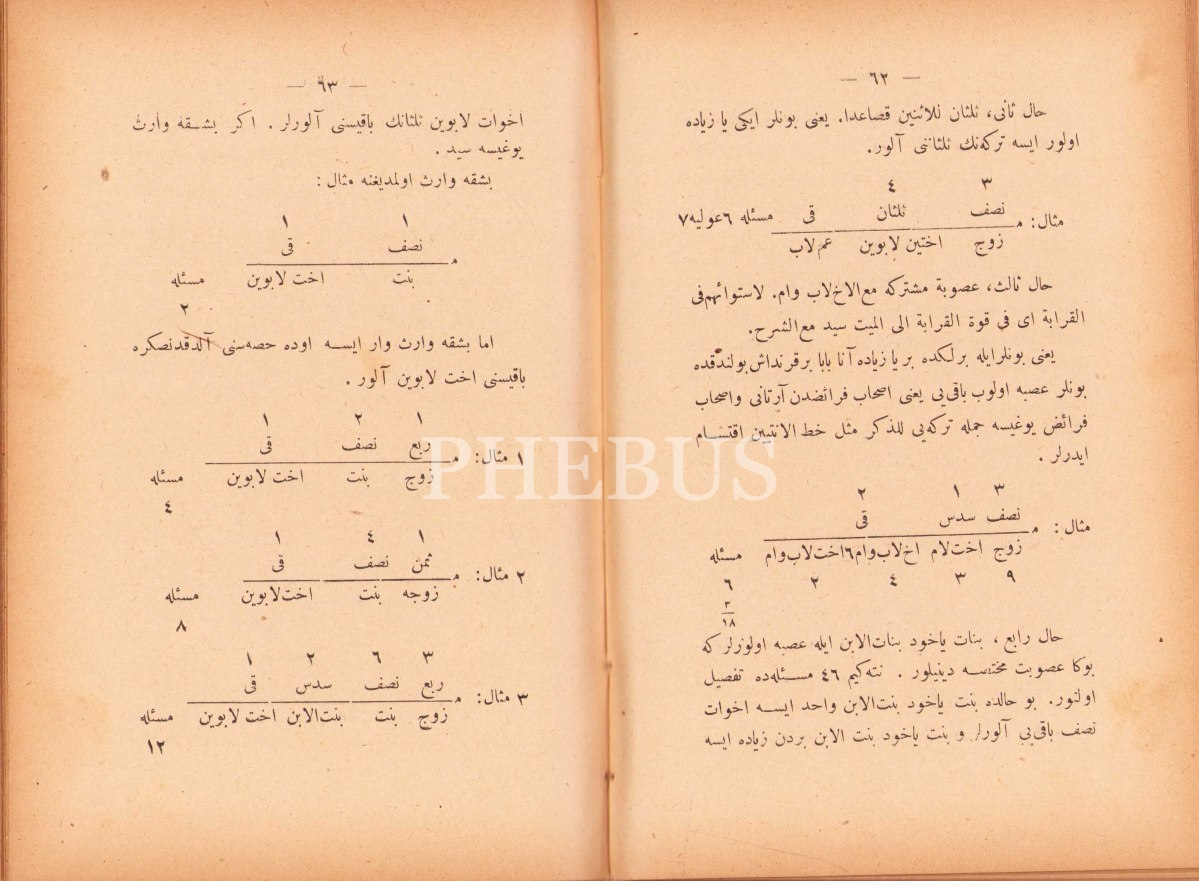 — ٦٢ —
حال ثانى، ثلثان للاثنين فصاعدا. يعنى بونلر ايكى يا زياده
اولور ايسه تركه‌نك ثلثاننى آلور.
٣ ٤
مثال: م نصف ثلثان قى مسئله ٦ عوليه ٧
زوج اختين لابوين عم لاب
حال ثالث، عصوبة مشتركه مع الاخ لاب وام. لاستوائهم فى
القرابة اى فى قوة القرابة الى الميت سيد مع الشرح.
يعنى بونلر ايله برلكده بر يا زياده آنا بابا بر قرنداش بولندقده
بونلر عصبه اولوب باقى يى يعنى اصحاب فرائضدن آرتانى واصحاب
فرائض يوغيسه جمله تركه يى للذكر مثل خط الانثيين اقتسام
ايدرلر.
٣ ١ ٢
مثال: م نصف سدس قى
زوج اخت لام اخ لاب وام ٦ اخت لاب وام مسئله
٩ ٣ ٤ ٢ ٦
٣
١٨
حال رابع، بنات ياخود بنات الابن ايله عصبه اولورلر كه
بوكا عصوبت مختسه دينيلور. نته‌كيم ٤٦ مسئله‌ده تفصيل
اولنور. بو حالده بنت ياخود بنت الابن واحد ايسه اخوات
نصف باقى يى آلورلر و بنت ياخود بنت الابن بردن زياده ايسه
— ٦٣ —
اخوات لابوين ثلثانك باقيسنى آلورلر. اكر بشقه وارث
يوغيسه سيد.
بشقه وارث اولمديغنه مثال:
١ ١
نصف قى
م بنت اخت لابوين مسئله
٢
اما بشقه وارث وار ايسه اوده حصه‌سنى آلدقدنصكره
باقيسنى اخت لابوين آلور.
١ ٢ ١
١ مثال: م ربع نصف قى
زوج بنت اخت لابوين مسئله
٤
١ ٤ ١
٢ مثال: م ثمن نصف قى
زوجه بنت اخت لابوين مسئله
٨
٣ ٦ ٢ ١
٣ مثال: م ربع نصف سدس قى
زوج بنت بنت الابن اخت لابوين مسئله
١٢
PHEBUS